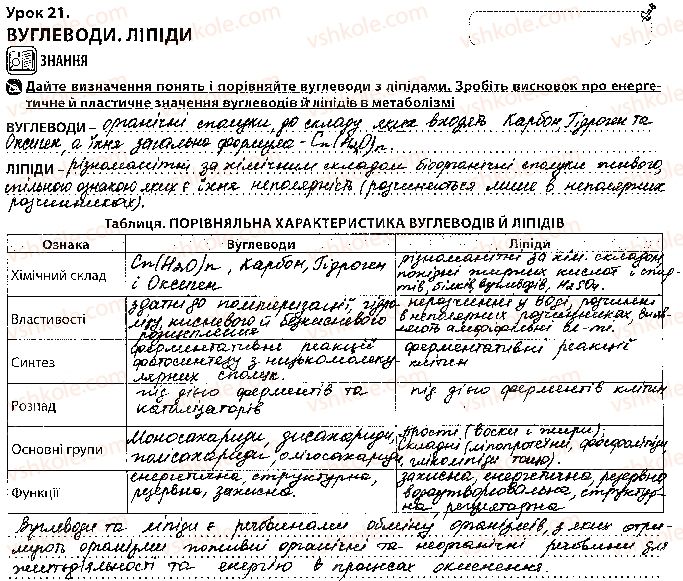 Урок 21.
ВУГЛЕВОДИ. ЛІПІДИ
ЗНАННЯ
Дайте визначення понять і порівняйте вуглеводи з ліпідами. Зробіть висновок про енерге-
тичне й пластичне значення вуглеводів й ліпідів в метаболізмі
ВУГЛЕВОДИ – органічні сполуки, до складу яких входять Карбон, Гідроген та
Оксиген, а їхня загальна формула – Cn(H2O)n.
ЛІПІДИ – різноманітні за хімічним складом біоорганічні сполуки живого,
спільною ознакою яких є їхня неполярність (розчиняються лише в неполярних
розчинниках).
Таблиця. ПОРІВНЯЛЬНА ХАРАКТЕРИСТИКА ВУГЛЕВОДІВ Й ЛІПІДІВ
Ознака Вуглеводи Ліпіди
Хімічний склад
Cn(H2O)n, Карбон, Гідроген
і Оксиген
різноманітні за хімі складом,
похідні жирних кислот спир-
тів, білків, вуглеводів,
Властивості
здатні до полімеризації, гідро-
лізу, кисневого й безкисневого
розщеплення
нерозчинні у воді, розчинні
в неполярних розчинниках, вияв-
ляють амфофільні вл-ті.
Синтез
ферментативне реакцій
фотосинтезу з низькомолеку-
лярних сполук.
ферментативні реакції
клітин
Розпад
під дією ферментів та
каталізаторів
під дією ферментів клітин
Основні групи
Моносахариди, дисахариди,
полісахариди, олігосахариди
прості (воски і жири),
складні (ліпопротеїни, фосфоліпіди,
гліколіпіди тощо).
Функції
енергетична, структурна,
резервна, захисна.
захисна, енергетична, резервна
водоутворювальна, структур-
на, рецепторна
Вуглеводи та ліпіди є речовинами обміну організмів, з яких отри-
мують організми поживні органічні та неорганічні речовини для
життєдіяльності та енергію в процесах окиснення.
vshkole.com